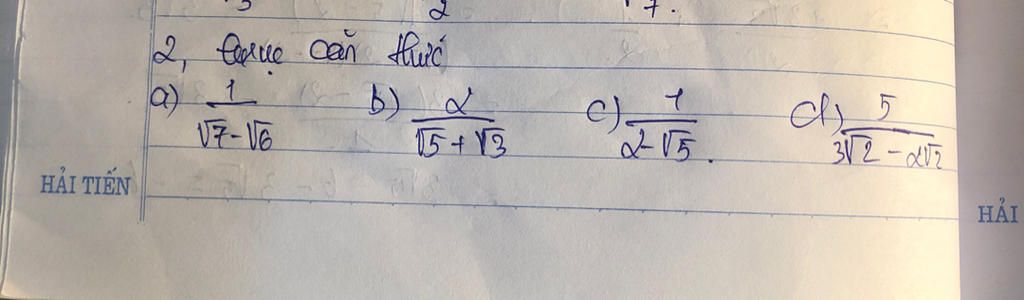 √3 2 √7.
2, trục căn thức
a) 1/(√7-√6) b) 2/(√5+√3) c) 1/(2-√5). d) 5/(3√2-2√2)
HẢI TIẾN
HẢI